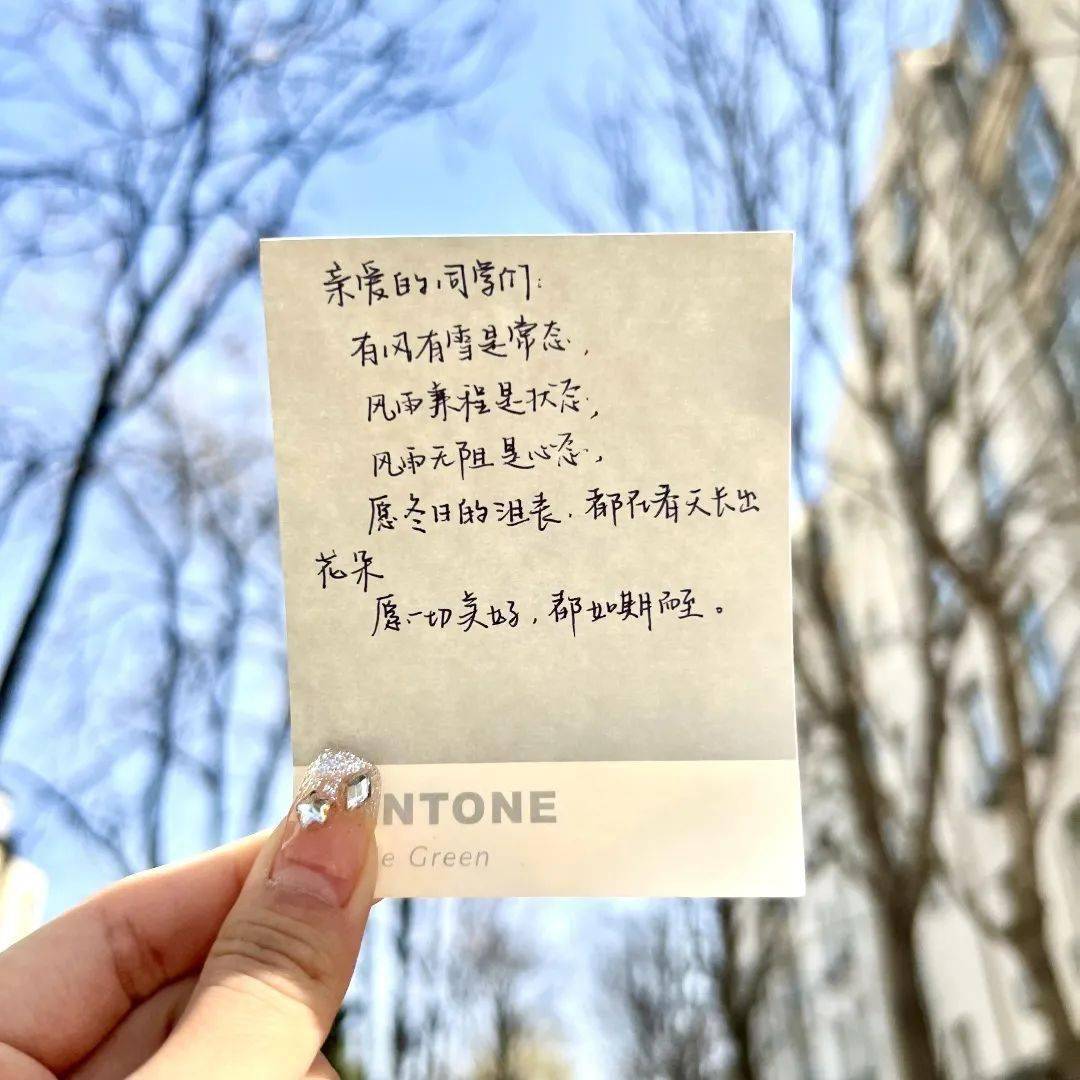 亲爱的同学们：
有风有雪是常态，
风雨兼程是状态，
风雨无阻是心态，
愿冬日的沮丧，都在春天长出
花朵
愿一切美好，都如期而至。
NTONE
e Green